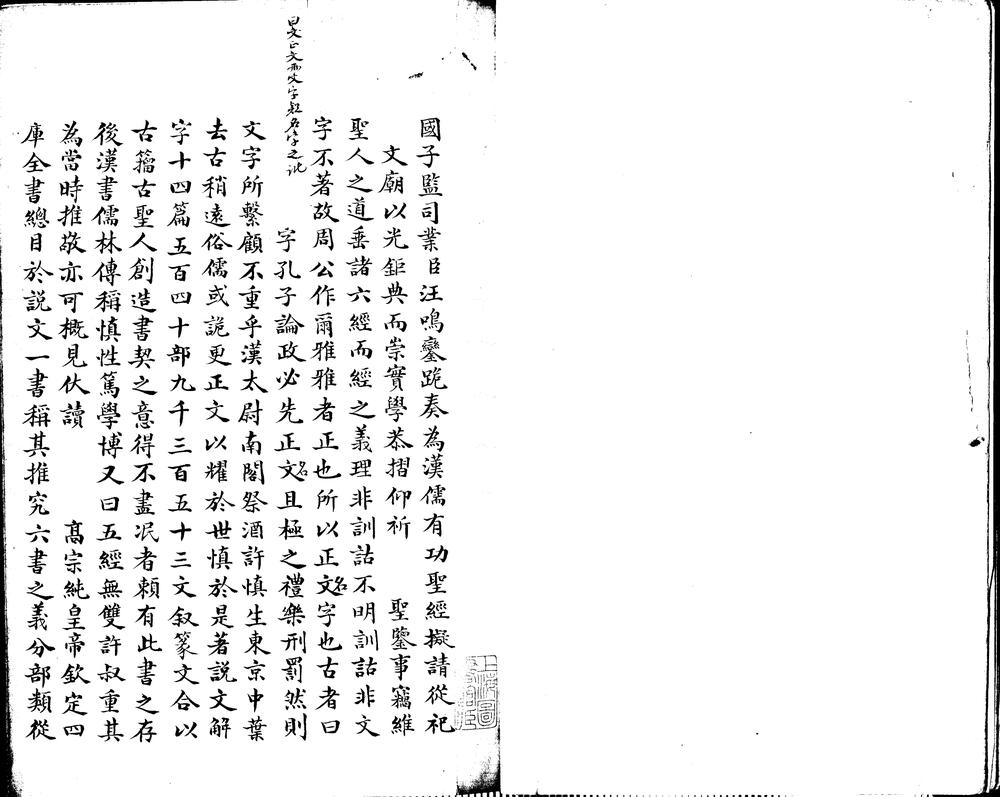 國子監司業臣汪鳴鑾跪奏為漢儒有功聖經擬請從祀
文廟以光鉅典而崇實學恭摺仰祈　聖鑒事竊維
聖人之道垂諸六經而經之義理非訓詁不明訓詁非文
字不著故周公作爾雅雅者正也所以正文名字也古者曰
字孔子論政必先正文名且極之禮樂刑罰然則
文字所繫顧不重乎漢太尉南閣祭酒許慎生東京中葉
去古稍遠俗儒或詭更正文以耀於世慎於是著説文解
字十四篇五百四十部九千三百五十三文叙篆文合以
古籀古聖人創造書契之意得不盡泯者頼有此書之存
後漢書儒林傳稱慎性篤學博又曰五經無雙許叔重其
為當時推敬亦可概見伏讀　高宗純皇帝欽定四
庫全書總目於説文一書稱其推究六書之義分部類從